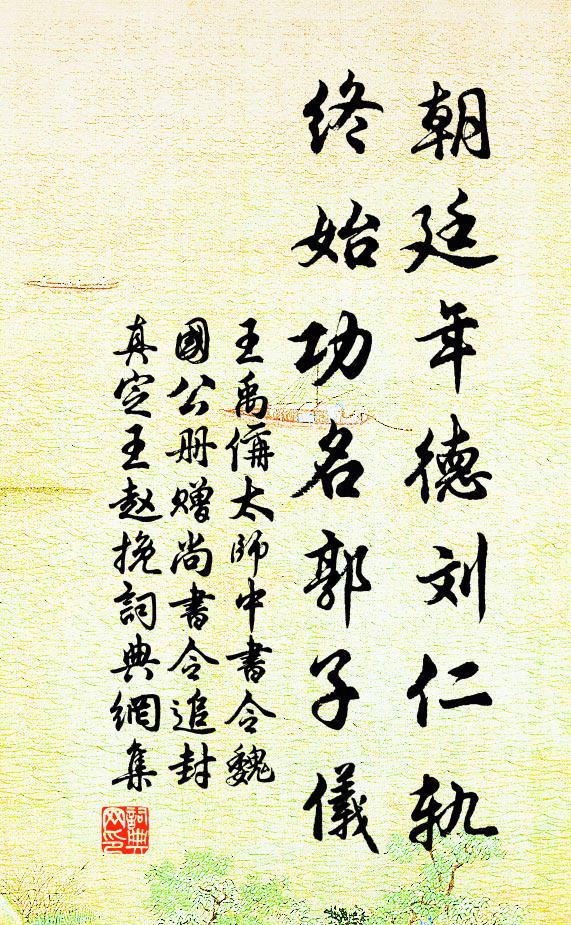 朝廷年德刘仁轨
终始功名郭子儀
王禹偁太师中書令魏
國公册赠尚書令追封
真定王赵挽詞典網集
詞典网印